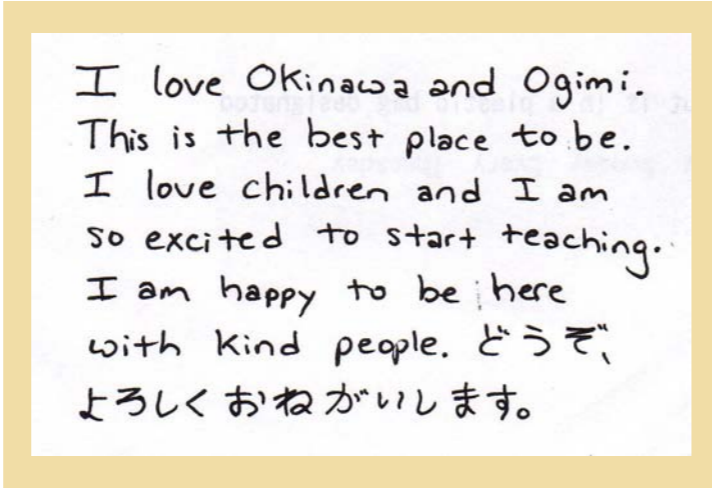 I love Okinawa and Ogimi.
This is the best place to be.
I love children and I am
so excited to start teaching.
I am happy to be here
with kind people. どうぞ、
よろしくおねがいします。